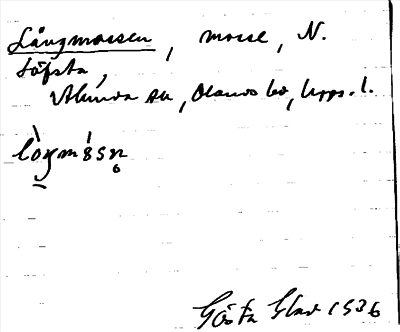 Långmossen, mosse, N.
Löfsta,
Alunda sn, Olands hd, Upps. l.
lòŋmósn̥
Gösta Glad 1936